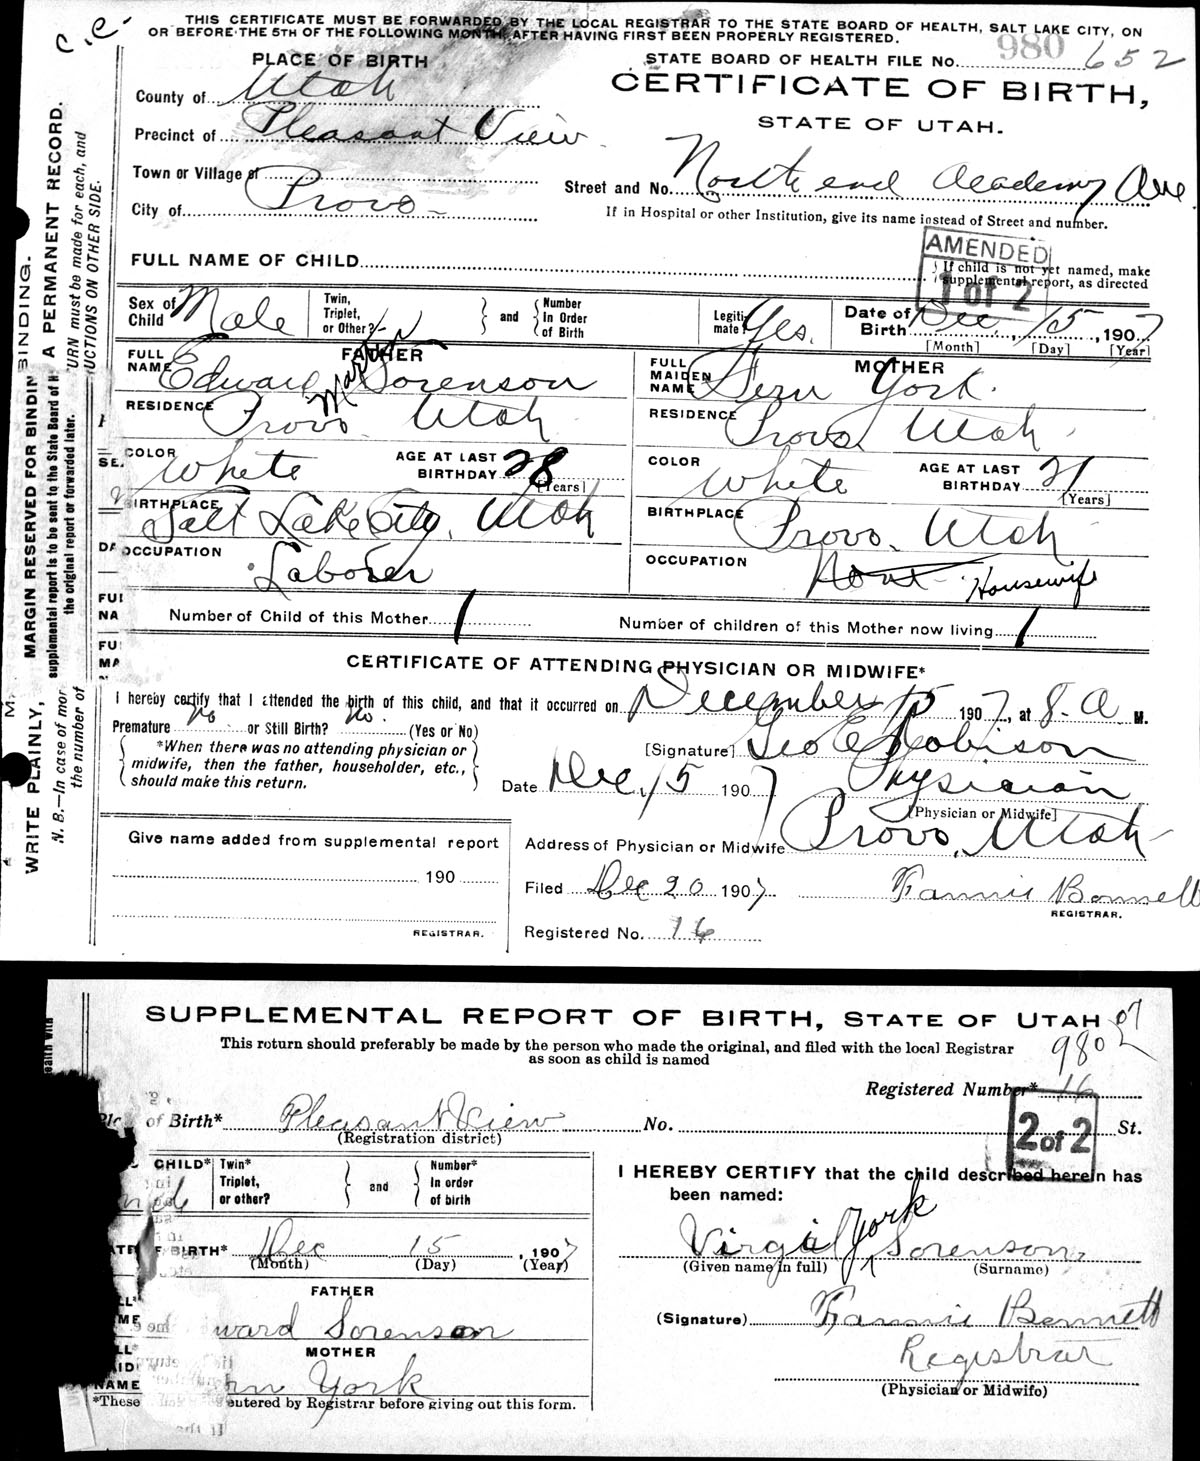 THIS CERTIFICATE MUST BE FORWARDED BY THE LOCAL REGISTRAR TO THE STATE BOARD OF HEALTH, SALT LAKE CITY, ON
OR BEFORE THE 5TH OF THE FOLLOWING MONTH, AFTER HAVING FIRST BEEN PROPERLY REGISTERED.
C.C.
980
STATE BOARD OF HEALTH FILE No. 652
PLACE OF BIRTH
CERTIFICATE OF BIRTH,
STATE OF UTAH.
County of Utah
Precinct of Pleasant View
Town or Village of
City of Provo
Street and No. North end Academy Ave.
If in Hospital or other Institution, give its name instead of Street and number.
FULL NAME OF CHILD
AMENDED
1 of 2
If child is not yet named, make
supplemental report, as directed
Sex of Child Male
Twin, Triplet, or Other?
and
Number In Order of Birth
Legitimate? Yes.
Date of Birth Dec. 15, 1907
[Month] [Day] [Year]
FATHER
FULL NAME Edward Martin Sorenson
RESIDENCE Provo Utah
COLOR White
AGE AT LAST BIRTHDAY 28 [Years]
BIRTHPLACE Salt Lake City, Utah
OCCUPATION Laborer
MOTHER
FULL MAIDEN NAME Fern York.
RESIDENCE Provo, Utah
COLOR White
AGE AT LAST BIRTHDAY 21 [Years]
BIRTHPLACE Provo, Utah
OCCUPATION Housewife
Number of Child of this Mother 1
Number of children of this Mother now living 1
CERTIFICATE OF ATTENDING PHYSICIAN OR MIDWIFE*
I hereby certify that I attended the birth of this child, and that it occurred on December 15 1907, at 8. A M.
Premature No or Still Birth? No. (Yes or No)
*When there was no attending physician or
midwife, then the father, householder, etc.,
should make this return.
[Signature] Geo E Robison
Date Dec. 15 1907
Physician
[Physician or Midwife]
Address of Physician or Midwife Provo, Utah
Give name added from supplemental report
190
REGISTRAR.
Filed Dec 20 1907
Fannie Bennett
REGISTRAR.
Registered No. 16
MARGIN RESERVED FOR BINDING.
WRITE PLAINLY,
A PERMANENT RECORD.
N. B.—In case of mor
the number of
supplemental report is to be sent to the State Board of H
the original report or forwarded later.
URN must be made for each, and
UCTIONS ON OTHER SIDE.
SUPPLEMENTAL REPORT OF BIRTH, STATE OF UTAH
07
980
This return should preferably be made by the person who made the original, and filed with the local Registrar
as soon as child is named
Registered Number* 16
of Birth* Pleasant View
(Registration district)
No. St.
2 of 2
CHILD*
Twin* Triplet, or other?
and
Number* In order of birth
I HEREBY CERTIFY that the child described herein has
been named:
Virgil York Sorenson
(Given name in full) (Surname)
BIRTH* Dec 15, 1907
(Month) (Day) (Year)
FATHER
ward Sorenson
MOTHER
NAME rn York
*These entered by Registrar before giving out this form.
(Signature) Fannie Bennett
Registrar
(Physician or Midwife)